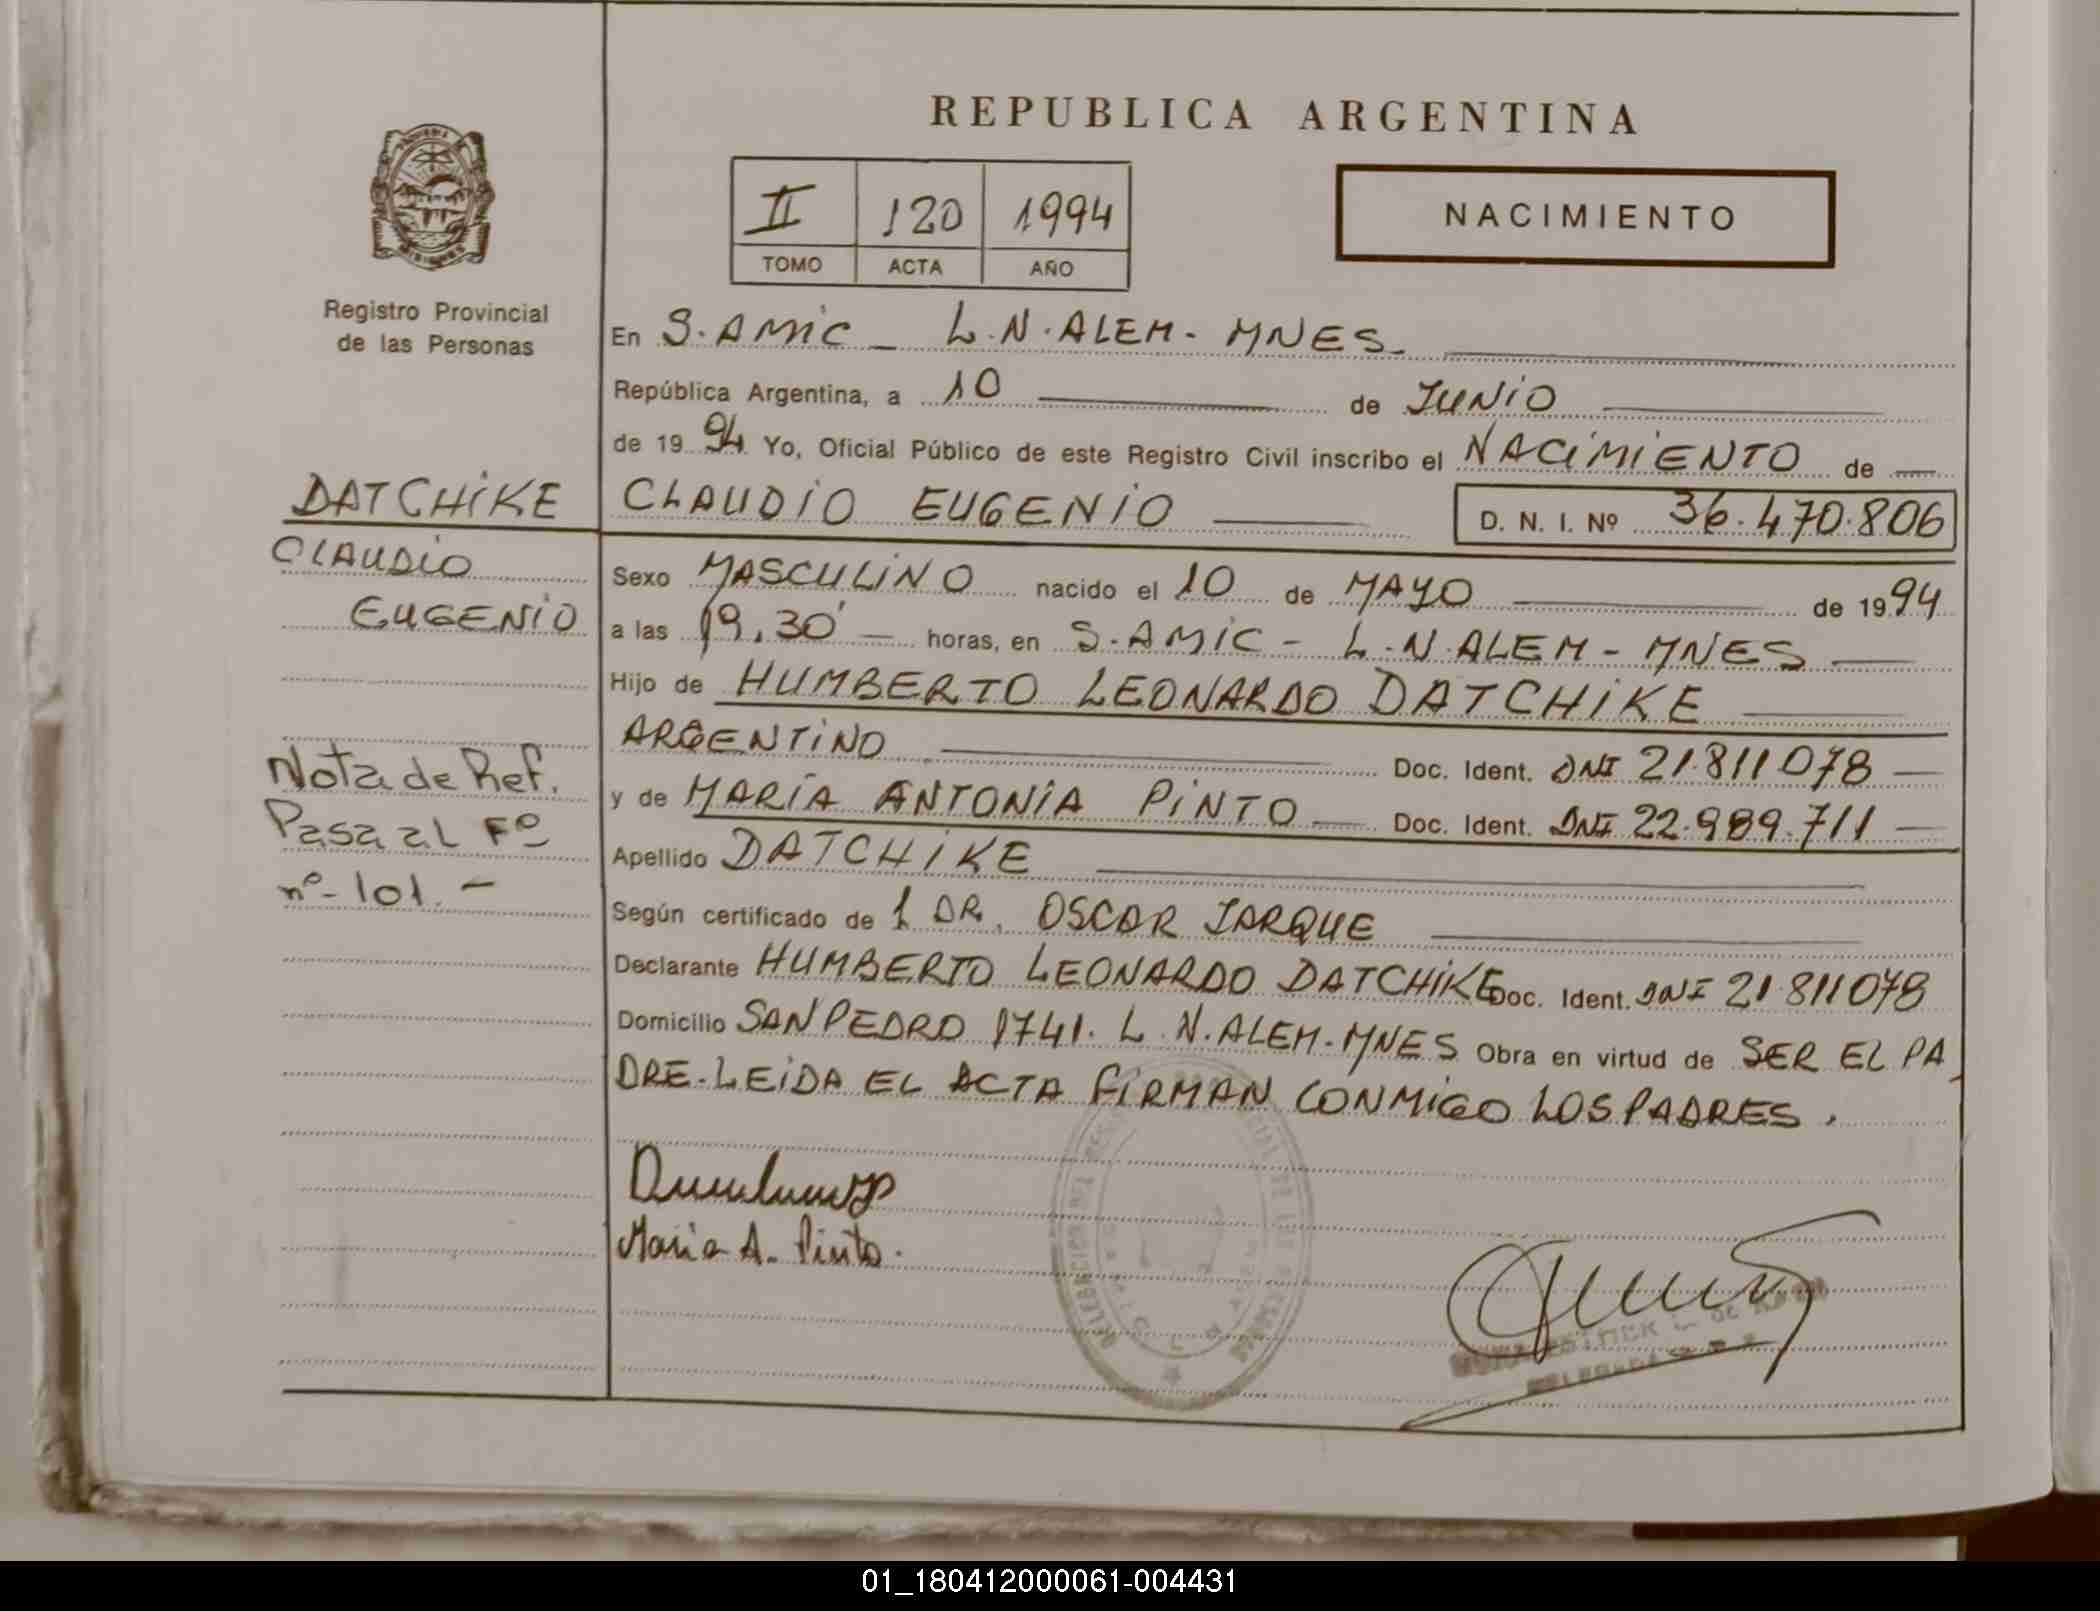 REPUBLICA ARGENTINA
II 120 1994
TOMO ACTA AÑO
NACIMIENTO
Registro Provincial
de las Personas
En S. AMIC - L.N. ALEM - MNES.
República Argentina, a 10 de JUNIO
de 1994 Yo, Oficial Público de este Registro Civil inscribo el NACIMIENTO de
DATCHIKE
CLAUDIO EUGENIO
D. N. I. Nº 36.470.806
CLAUDIO
EUGENIO
Sexo MASCULINO nacido el 10 de MAYO de 1994
a las 19.30' horas, en S. AMIC - L.N. ALEM - MNES
Hijo de HUMBERTO LEONARDO DATCHIKE
ARGENTINO Doc. Ident. DNI 21.811078
y de MARÍA ANTONIA PINTO Doc. Ident. DNI 22.989.711
Apellido DATCHIKE
Nota de Ref.
Pasa al Fº
nº - 101. -
Según certificado de 1 DR. OSCAR JARQUE
Declarante HUMBERTO LEONARDO DATCHIKE Doc. Ident. DNI 21.811078
Domicilio SAN PEDRO 1741. L.N. ALEM - MNES Obra en virtud de SER EL PA
DRE - LEIDA EL ACTA FIRMAN CONMIGO LOS PADRES.
Maria A. Pinto.
01_180412000061-004431